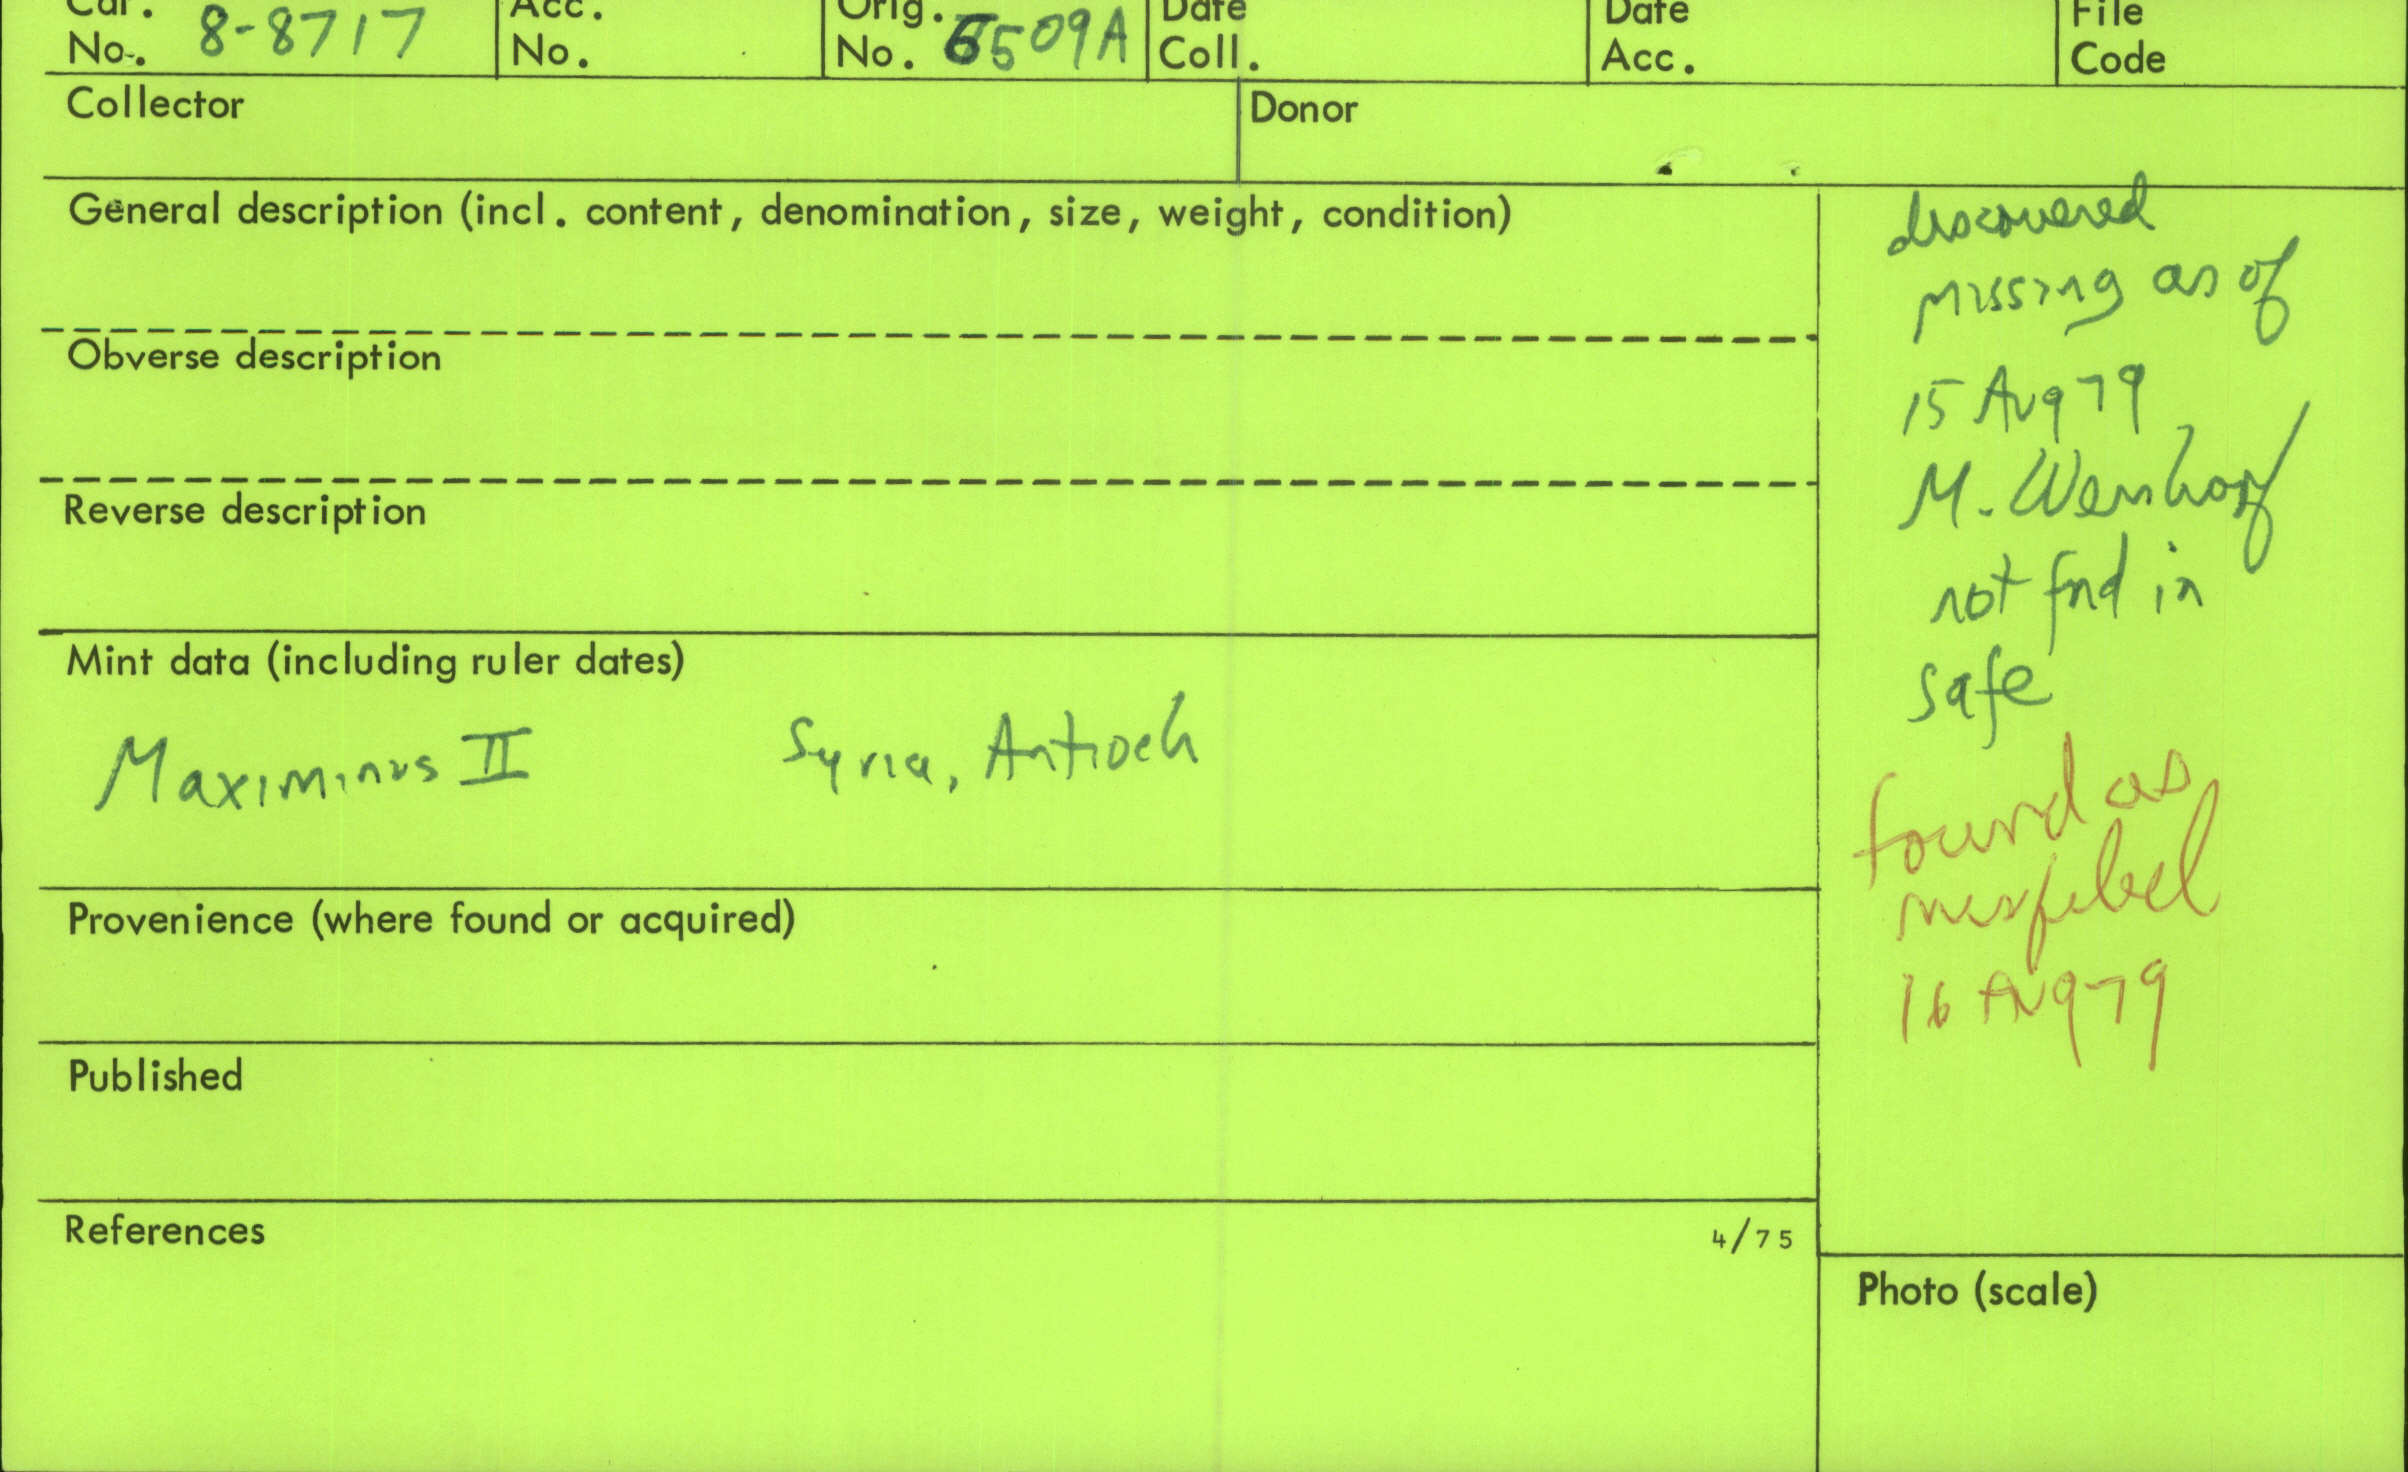 Cat. No. 8-8717
Acc. No.
Orig. No. 6509A
Date Coll.
Date Acc.
File Code
Collector
Donor
General description (incl. content, denomination, size, weight, condition)
Obverse description
Reverse description
Mint data (including ruler dates)
Maximinus II Syria, Antioch
Provenience (where found or acquired)
Published
References
4/75
discovered
missing as of
15 Aug 79
M.
not fnd in
safe
found as
16 Aug 79
Photo (scale)